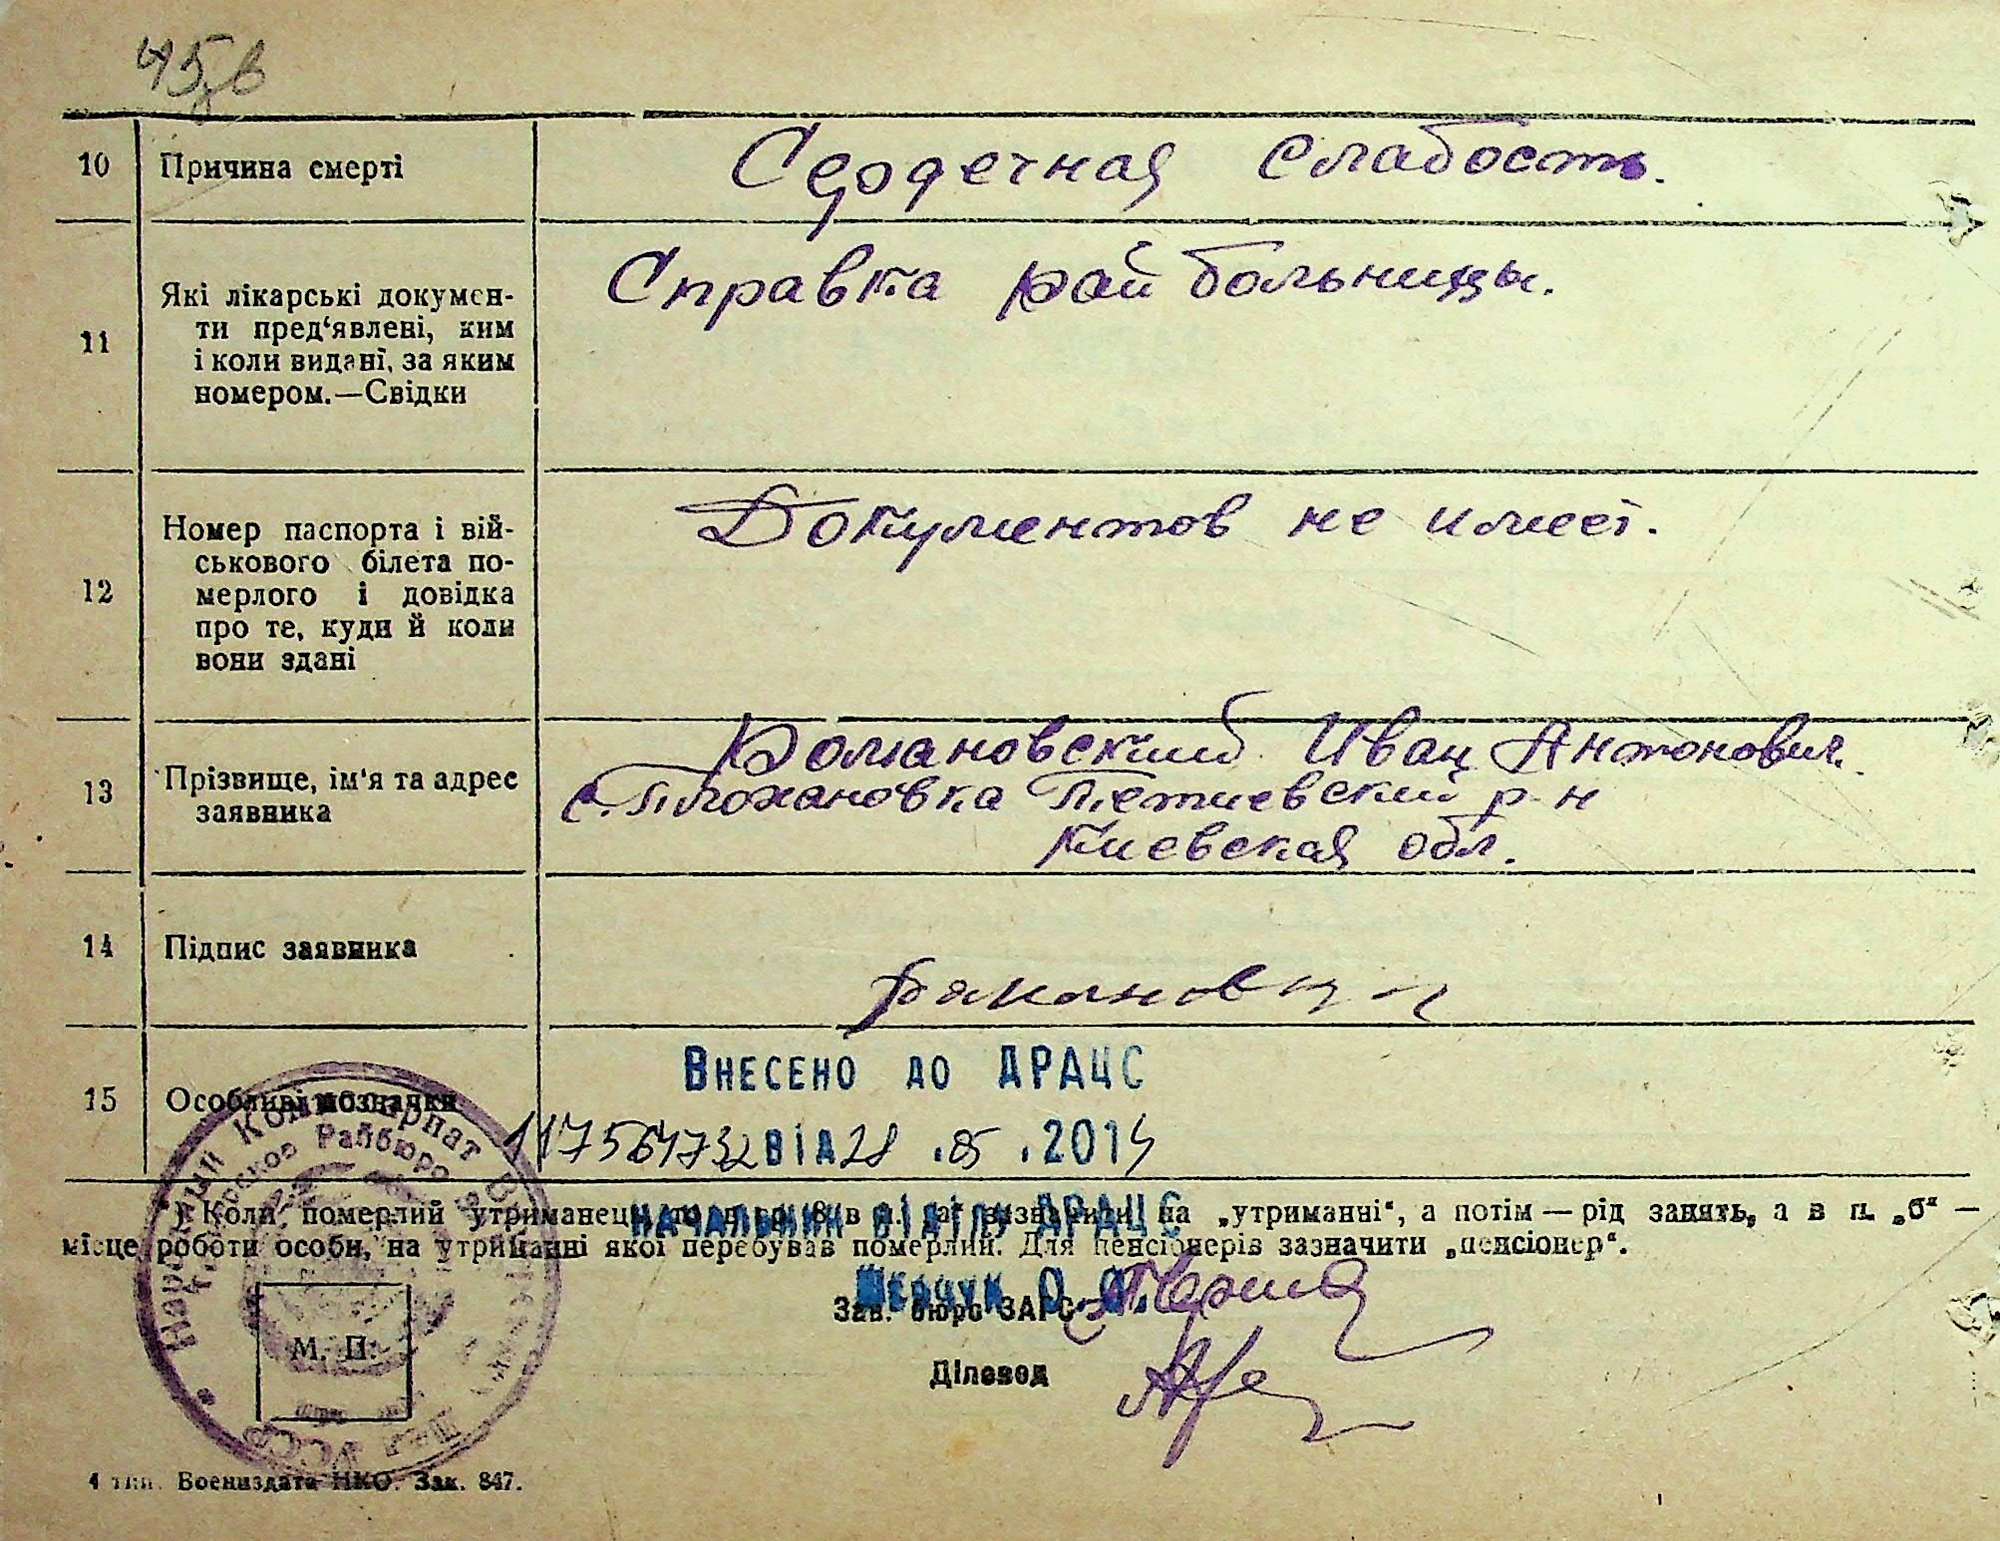 10 Причина смерті Сердечная слабость.
11 Які лікарські докумен-
ти пред‘явлені, ким
і коли видані, за яким
номером.—Свідки
Справка рай больницы.
12 Номер паспорта і вій-
ськового білета по-
мерлого і довідка
про те, куди й коли
вони здані
Документов не имеет.
13 Прізвище, ім‘я та адрес
заявника
Романовский Иван Антонович.
с. Плохановка Тетиевский р-н
Киевская обл.
14 Підпис заявника
15 Особливі позначки
Внесено до ДРАЦС
від 28 .05 .2014
*) Коли померлий утриманець, то в гр. 8 „утриманні“, а потім — рід занять, а в п. „б“ —
місце роботи особи, на утриманні якої перебував померлий. Для пенсіонерів зазначити „пенсіонер“.
Начальник відділу ДРАЦС
Шевчук О.
Зав. бюро ЗАГС
Діловод
М. П.
Народний Комісаріат
Раббюро
УССР
4 тип. Воениздата НКО. Зак. 847.